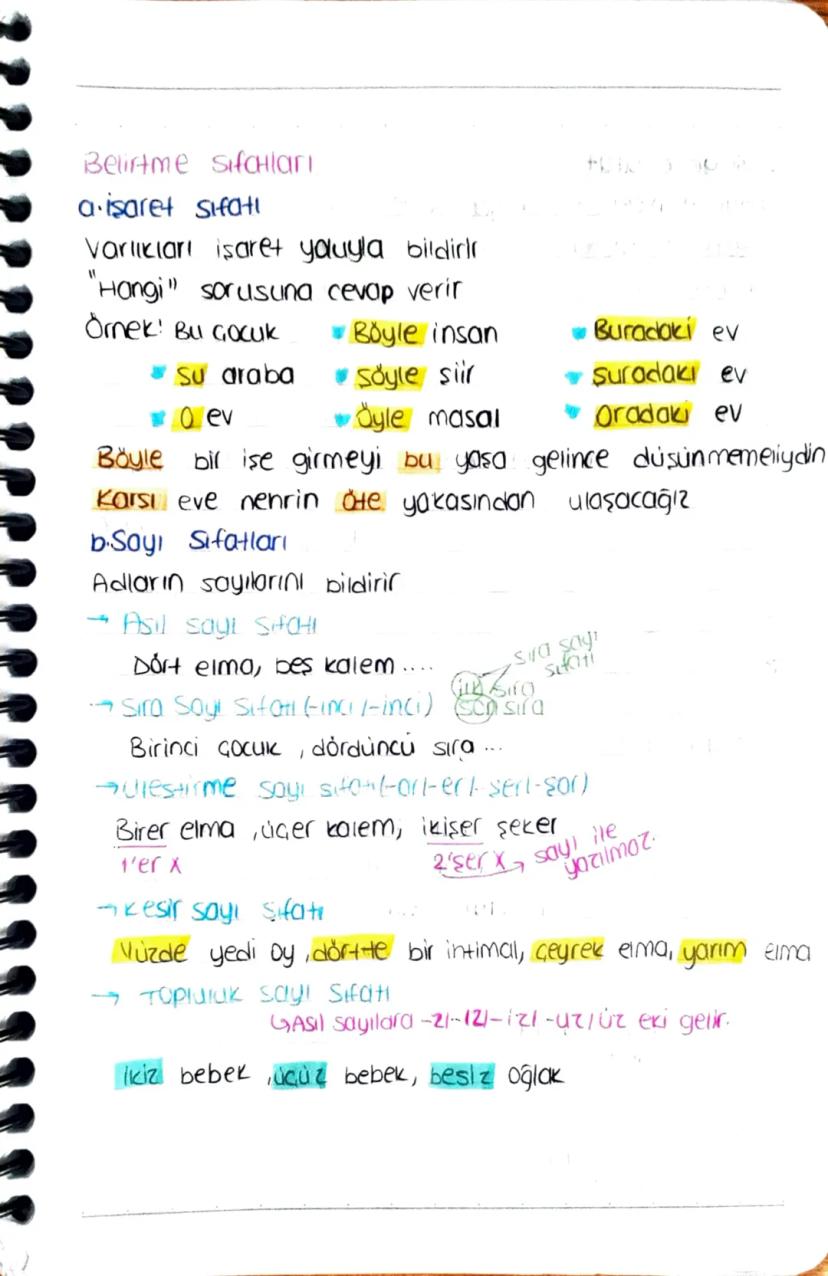 Belirtme sıfatları
a. işaret sıfatı
Varlıkları işaret yoluyla bildirir
"Hangi" sorusuna cevap verir
Örnek: Bu çocuk Böyle insan Buradaki ev
şu araba şöyle şiir şuradaki ev
O ev Öyle masal Oradaki ev
Böyle bir işe girmeyi bu yaşa gelince düşünmemeliydin
Karşı eve nehrin öte yakasından ulaşacağız
b. Sayı Sıfatları
Adların sayılarını bildirir
→ Asıl sayı sıfatı
Dört elma, beş kalem ....
sıra sayı
sıfatı
ilk sıra
→ Sıra Sayı Sıfatı (-ıncı / -inci) son sıra
Birinci çocuk, dördüncü sıra ...
→ Üleştirme sayı sıfatı (-ar/-er/-şer/-şar)
Birer elma, üçer kalem, ikişer şeker
1'er X 2'şer X → sayı ile
yazılmaz.
→ Kesir sayı sıfatı
Yüzde yedi oy, dörtte bir ihtimal, çeyrek elma, yarım elma
→ Topluluk sayı Sıfatı
↳ Asıl sayılara -z/-ız/-iz/-uz/üz eki gelir.
ikiz bebek, üçüz bebek, beşiz oğlak